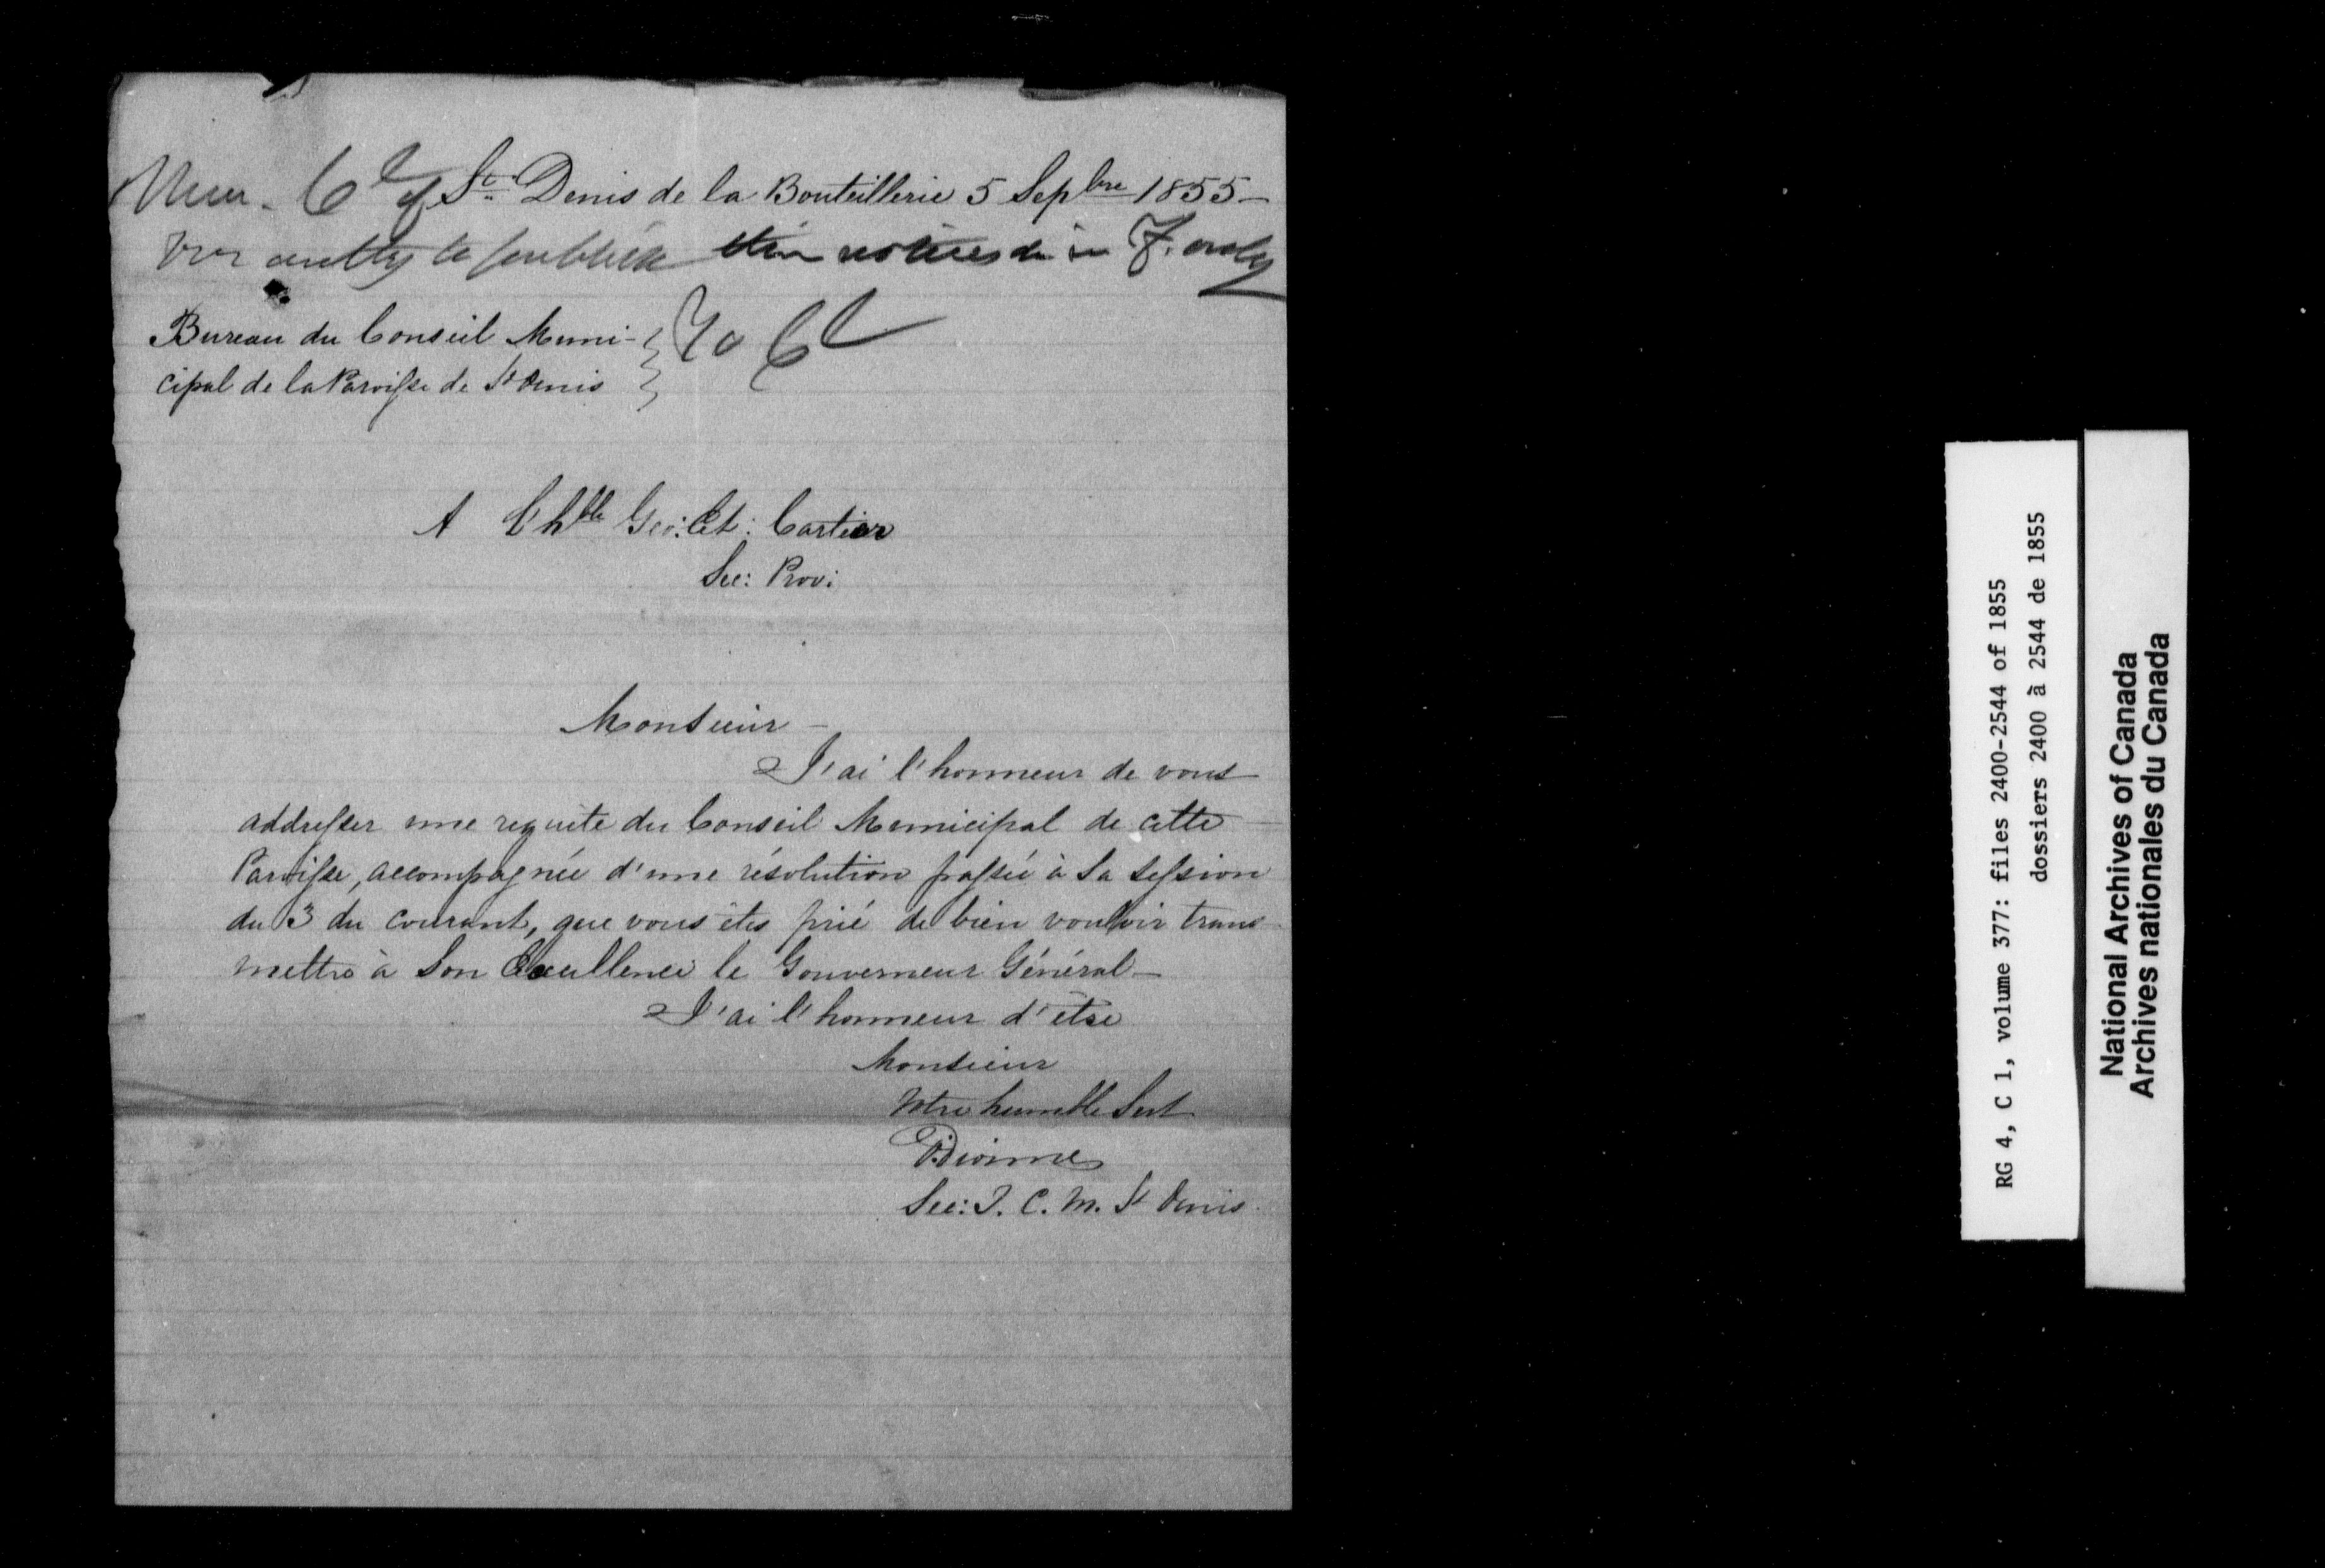 Mun. Cl of St. Denis de la Bouteillerie 5 Sepbre 1855 –
for authy to publish their notices in F. only
Bureau du Conseil Muni-
cipal de la Paroisse de St Denis
A L'hble Geo: Et: Cartier
Sec: Prov:
Monsieur –
J'ai l'honneur de vous
addresser une requète du Conseil Municipal de cette
Paroisse, accompagnée d'une résolution passée à sa session
du 3 du courant, que vous êtes prié de bien vouloir trans
mettre à Son Excellence le Gouverneur Général –
J'ai l'honneur d'être
Monsieur
Votre humble Sert
P. Dionne
Sec: T. C. M. St Denis.
RG 4, C 1, volume 377: files 2400-2544 of 1855
dossiers 2400 à 2544 de 1855
National Archives of Canada
Archives nationales du Canada